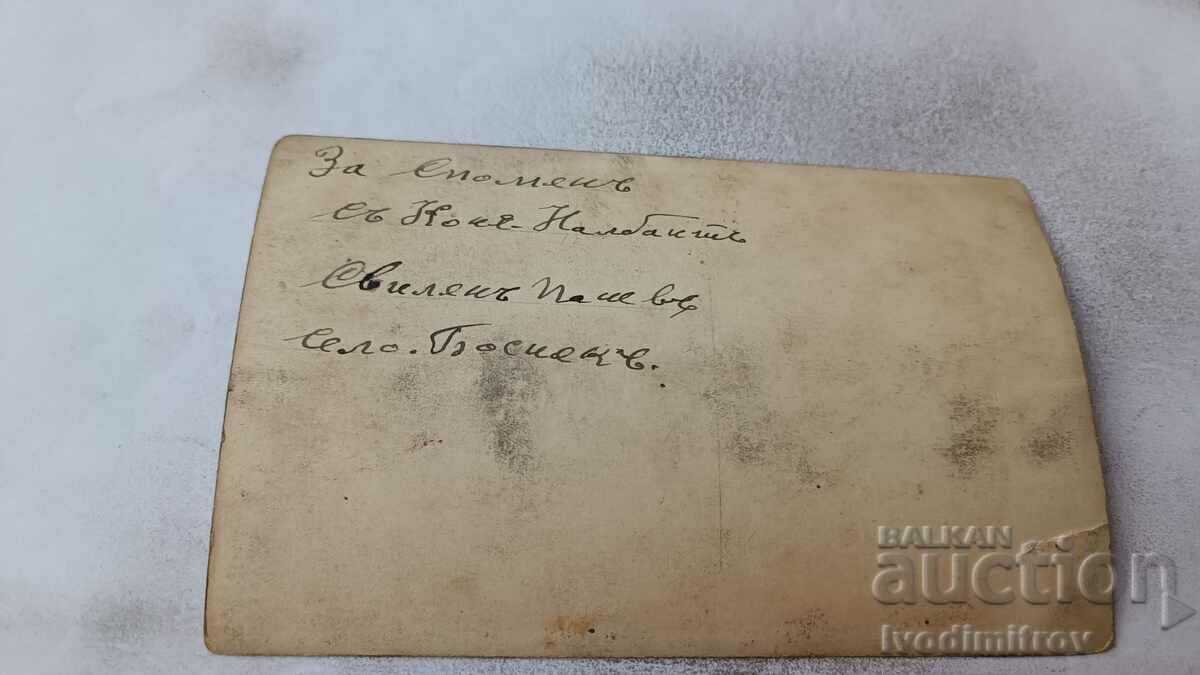 За Споменъ
Съ Коня-Налбантъ
Свиленъ
Село. Боснякъ.
BALKAN
auction
Ivodimitrov